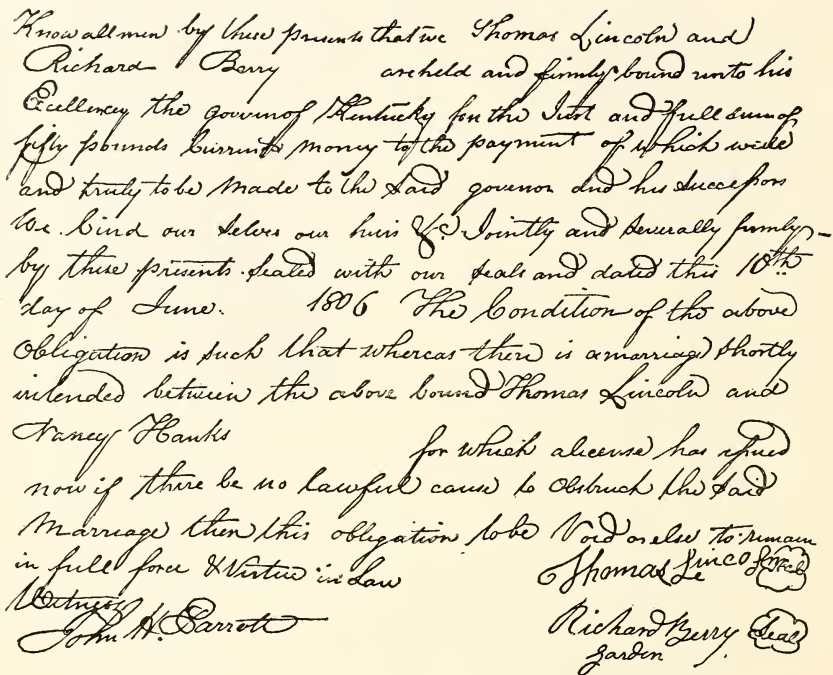 Know all men by these presents that we Thomas Lincoln and
Richard Berry are held and firmly bound unto his
Excellency the governor of Kentucky for the Just and full sum of
fifty pounds Current money to the payment of which well
and truly to be made to the said governor and his successors
We bind our selves our heirs &c Jointly and severally firmly
by these presents sealed with our seals and dated this 10th
day of June. 1806 The Condition of the above
Obligation is such that whereas there is a marriage shortly
intended between the above bound Thomas Lincoln and
Nancy Hanks for which a license has issued
now if there be no lawful cause to obstruct the said
marriage then this obligation to be Void or else to remain
in full force & Virtue in Law
Thomas Lincoln Seal
Witness
John H. Parrott
Richard Berry Seal
garden